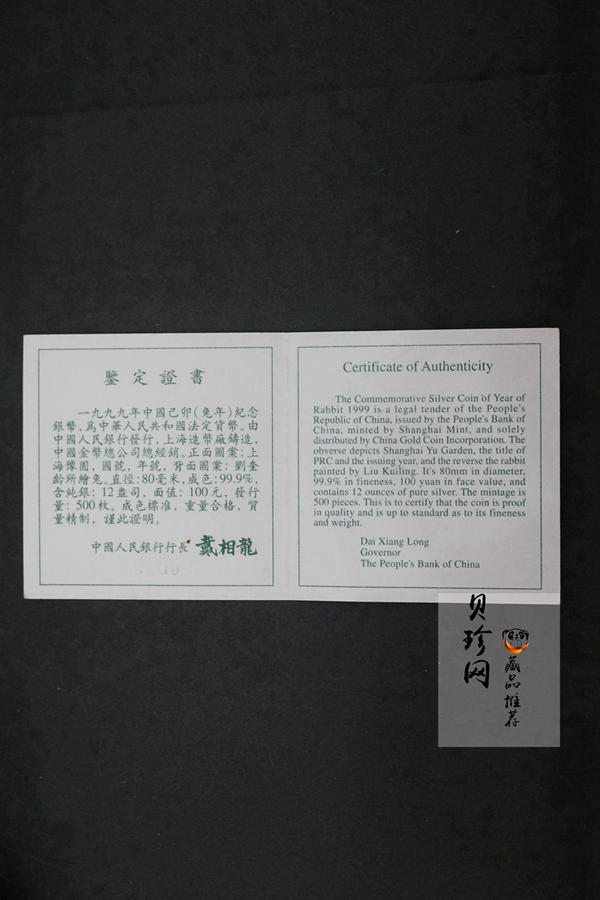 鑒定證書
一九九九年中國己卯(兔年)紀念
銀幣,爲中華人民共和國法定貨幣。由
中國人民銀行發行,上海造幣廠鑄造,
中國金幣總公司總經銷。正面圖案:上
海豫園,國號,年號,背面圖案:劉奎
齡所繪兔。直徑:80毫米,成色:99.9%,
含純銀:12盎司,面值:100元,發行
量:500枚。成色標准,重量合格,質
量精制,謹此證明。
中國人民銀行行長 戴相龍
Certificate of Authenticity
The Commemorative Silver Coin of Year of
Rabbit 1999 is a legal tender of the People's
Republic of China, issued by the People's Bank of
China, minted by Shanghai Mint, and solely
distributed by China Gold Coin Incorporation. The
obverse depicts Shanghai Yu Garden, the title of
PRC and the issuing year, and the reverse the rabbit
painted by Liu Kuiling. It's 80mm in diameter,
99.9% in fineness, 100 yuan in face value, and
contains 12 ounces of pure silver. The mintage is
500 pieces. This is to certify that the coin is proof
in quality and is up to standard as to its fineness
and weight.
Dai Xiang Long
Governor
The People's Bank of China
贝珍网
藏品推荐